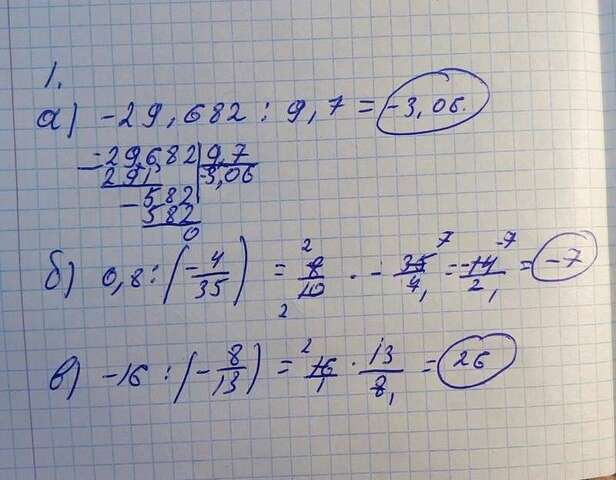 1.
а) -29,682 : 9,7 = -3,06.
-29,682 | 9,7
291 | -3,06
-582
582
0
б) 0,8 : (-4/35) = 8/10 · -35/4 = -14/2 = -7
2 7 -7
2 1 1
в) -16 : (-8/13) = 16/1 · 13/8 = 26
2
1